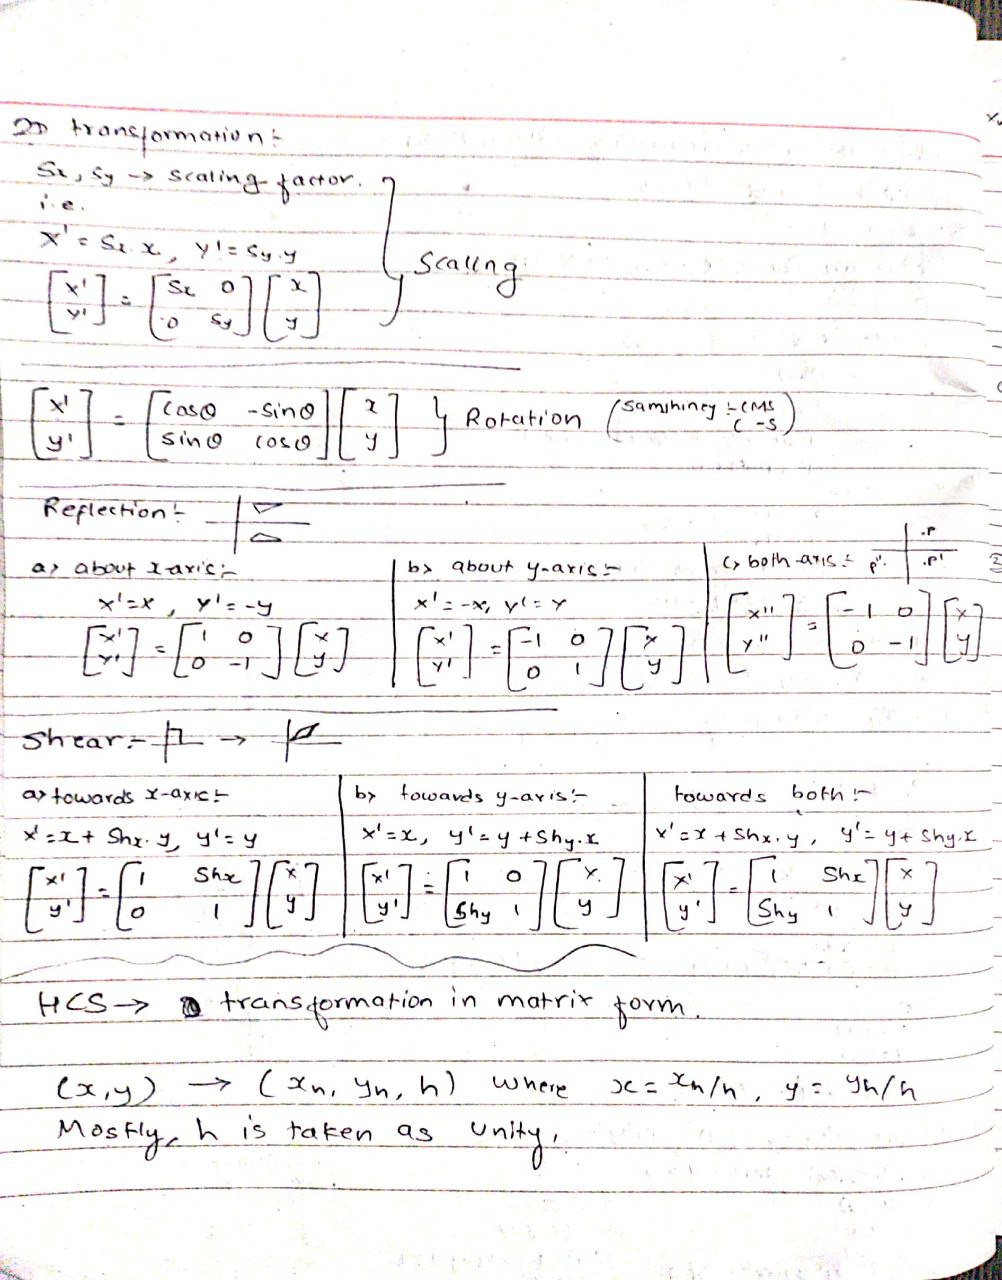 2D transformation:-
Sx, Sy → scaling factor.
i.e.
x' = Sx.x, y' = Sy.y
[x' y'] = [Sx 0 0 Sy] [x y] } Scaling
[x' y'] = [cosθ -sinθ sinθ cosθ] [x y] } Rotation
Reflection:-
a) about x-axis:-
x'=x, y'=-y
[x' y'] = [1 0 0 -1] [x y]
b) about y-axis:-
x'=-x, y'=y
[x' y'] = [-1 0 0 1] [x y]
c) both-axis:- p". .p .p'
[x" y"] = [-1 0 0 -1] [x y]
Shear:- →
a) towards x-axis:-
x'=x+ Shx.y, y'=y
[x' y'] = [1 Shx 0 1] [x y]
b) towards y-axis:-
x'=x, y'=y+Shy.x
[x' y'] = [1 0 Shy 1] [x y]
towards both:-
x'=x+Shx.y, y'=y+Shy.x
[x' y'] = [1 Shx Shy 1] [x y]
HCS → transformation in matrix form.
(x,y) → (xh, yh, h) where x = xh/h, y = yh/h
Mostly, h is taken as unity.